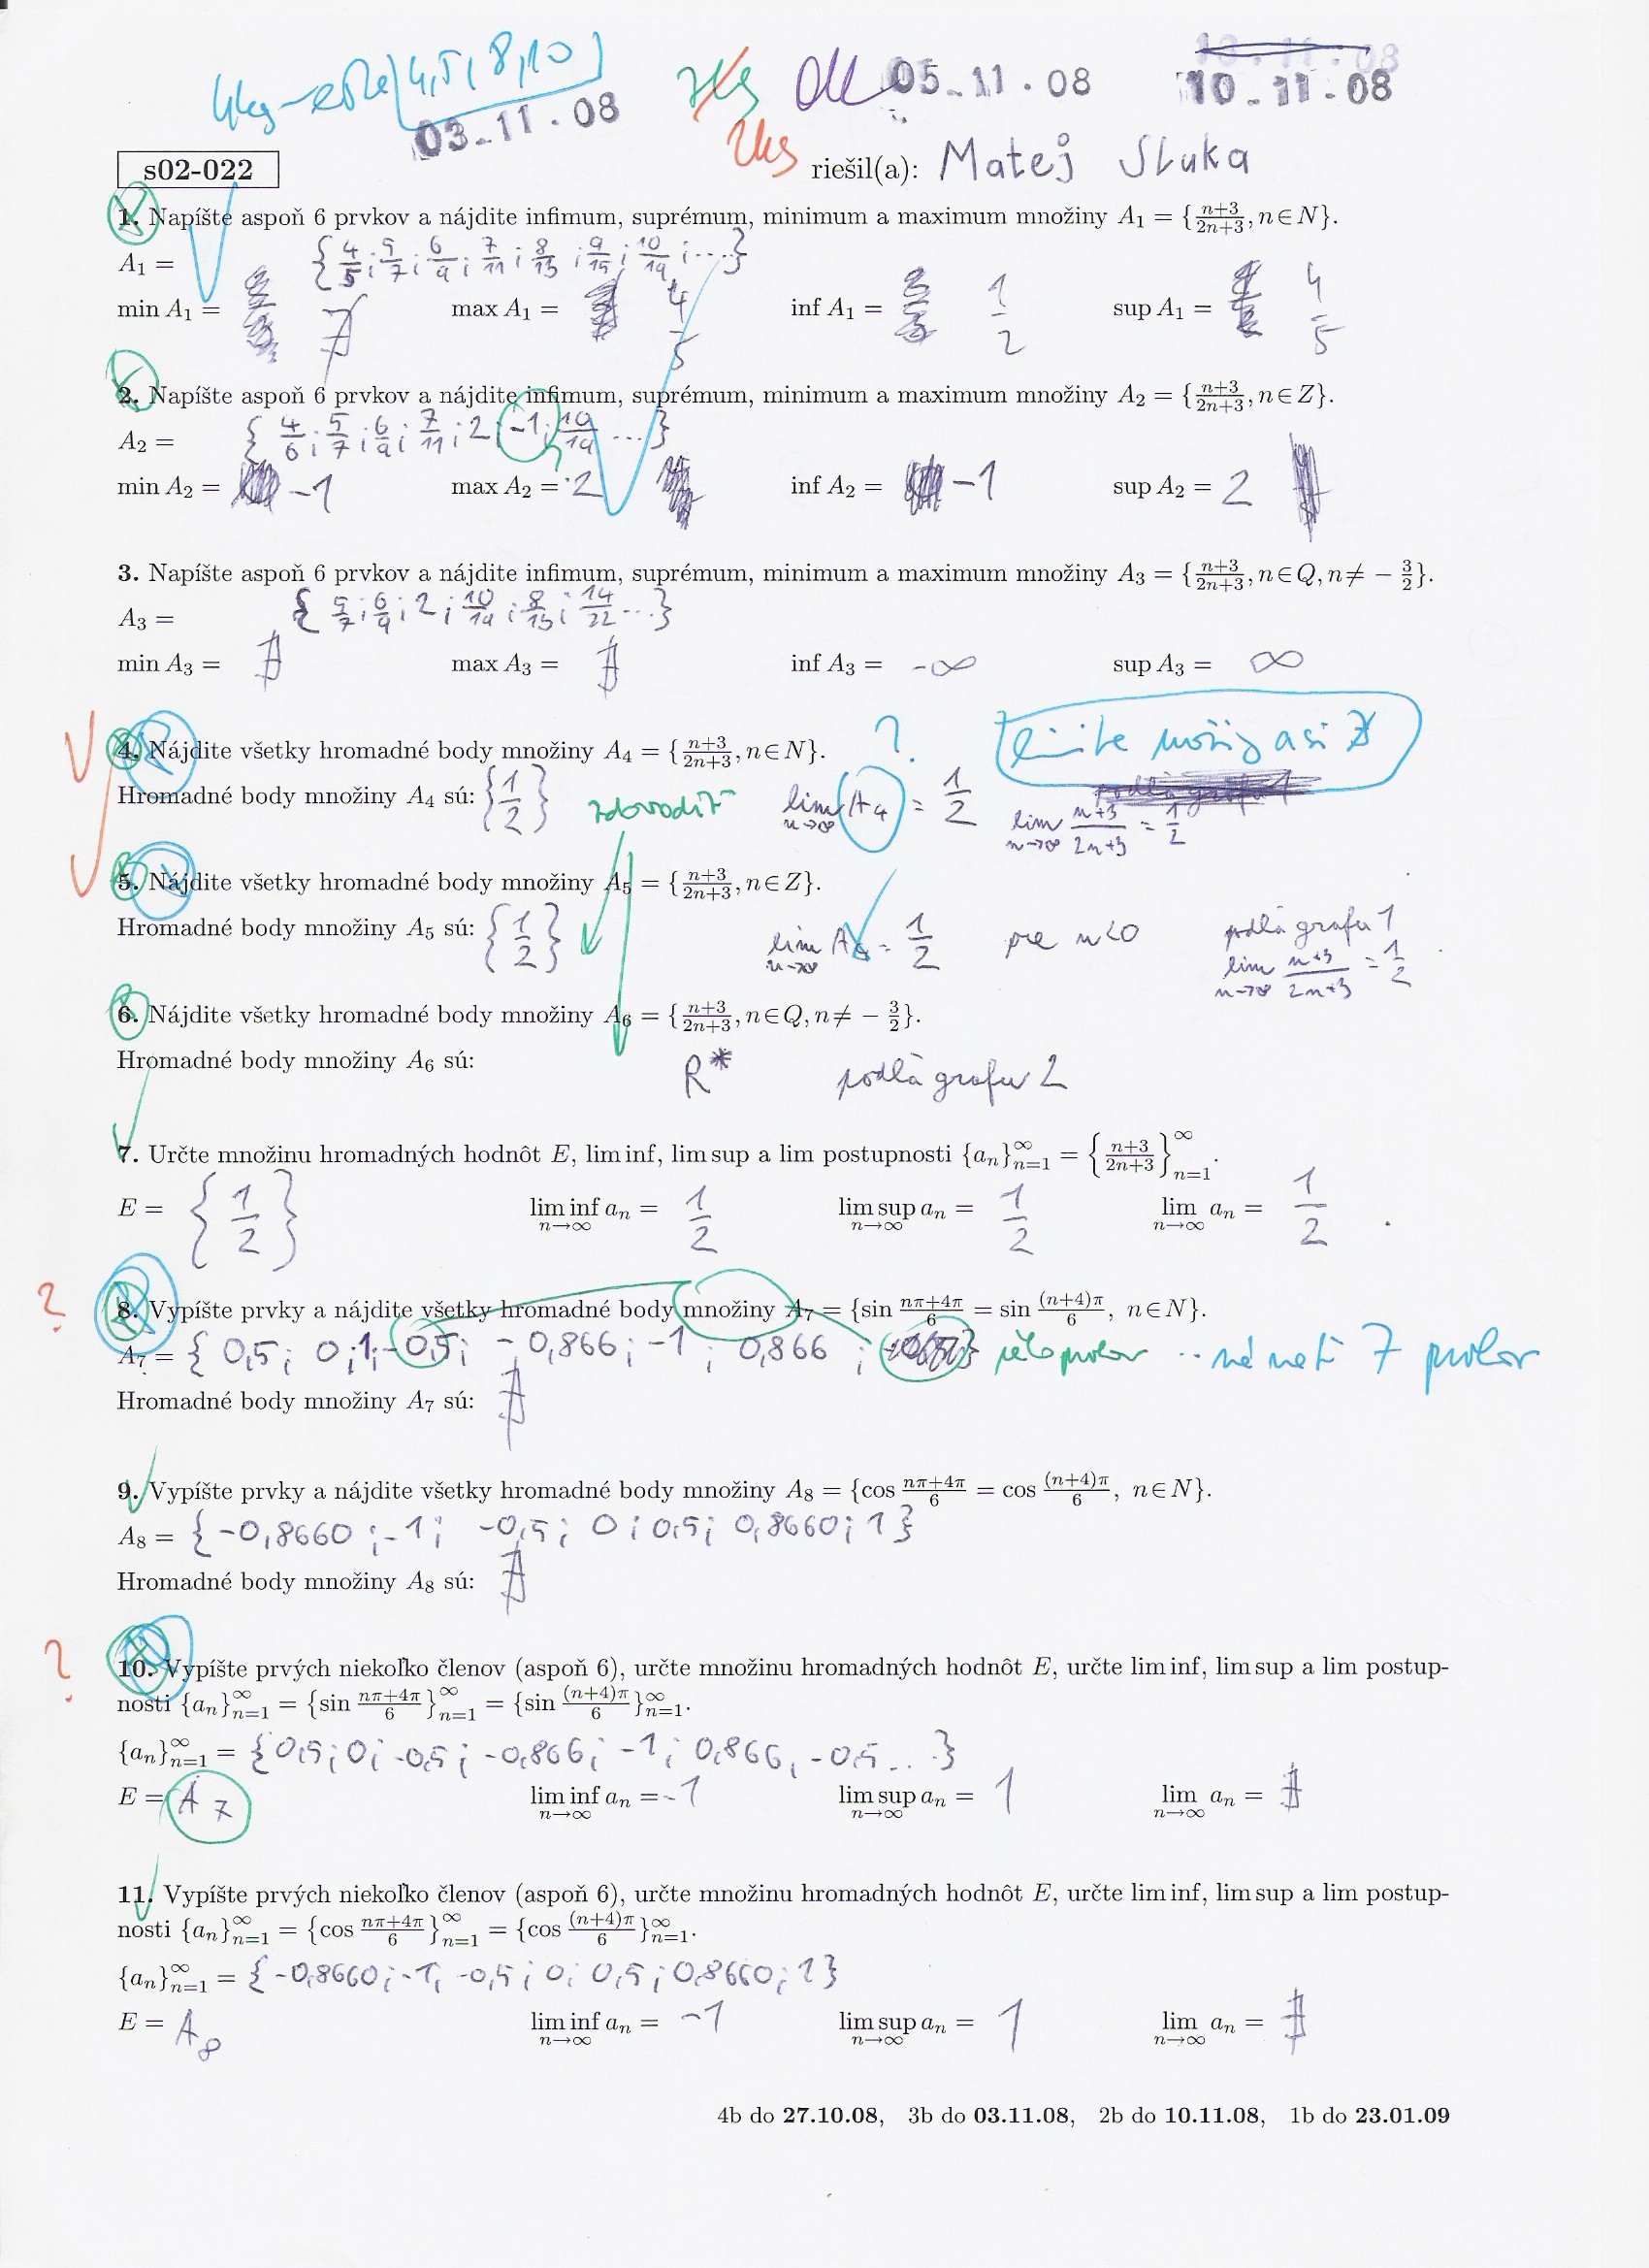 4ks - ešte (4, 5, 8, 10)
03-11-08
05-11-08
10-11-08
2ks
s02-022
riešil(a): Matej Sluka
1. Napíšte aspoň 6 prvkov a nájdite infimum, suprémum, minimum a maximum množiny A₁ = {(n+3)/(2n+3), n∈N}.
A₁ = {4/5; 5/7; 6/9; 7/11; 8/13; 9/15; 10/19; ...}
min A₁ = ∄ max A₁ = 4/5 inf A₁ = 1/2 sup A₁ = 4/5
2. Napíšte aspoň 6 prvkov a nájdite infimum, suprémum, minimum a maximum množiny A₂ = {(n+3)/(2n+3), n∈Z}.
A₂ = {4/6; 5/7; 6/9; 7/11; 2; -1; 10/19 ...}
min A₂ = -1 max A₂ = 2 inf A₂ = -1 sup A₂ = 2
3. Napíšte aspoň 6 prvkov a nájdite infimum, suprémum, minimum a maximum množiny A₃ = {(n+3)/(2n+3), n∈Q, n≠ -3/2}.
A₃ = {5/7; 6/9; 2; 10/19; 8/13; 14/22 ...}
min A₃ = ∄ max A₃ = ∄ inf A₃ = -∞ sup A₃ = ∞
4. Nájdite všetky hromadné body množiny A₄ = {(n+3)/(2n+3), n∈N}. ?
Hromadné body množiny A₄ sú: {1/2} zdôvodiť lim n→∞ A₄ = 1/2 lim n→∞ (n+3)/(2n+3) = 1/2
5. Nájdite všetky hromadné body množiny A₅ = {(n+3)/(2n+3), n∈Z}.
Hromadné body množiny A₅ sú: {1/2} lim n→∞ A₅ = 1/2 pre n<0 podľa grafu 1
lim n→∞ (n+3)/(2n+3) = 1/2
6. Nájdite všetky hromadné body množiny A₆ = {(n+3)/(2n+3), n∈Q, n≠ -3/2}.
Hromadné body množiny A₆ sú: R* podľa grafu 2
7. Určte množinu hromadných hodnôt E, lim inf, lim sup a lim postupnosti {aₙ}∞ₙ₌₁ = {(n+3)/(2n+3)}∞ₙ₌₁.
E = {1/2} lim inf n→∞ aₙ = 1/2 lim sup n→∞ aₙ = 1/2 lim n→∞ aₙ = 1/2
? 8. Vypíšte prvky a nájdite všetky hromadné body množiny A₇ = {sin (nπ+4π)/6 = sin (n+4)π/6, n∈N}.
A₇ = {0,5; 0; 1; -0,5; -0,866; -1; 0,866; } má mať 7 prvkov
Hromadné body množiny A₇ sú: ∄
9. Vypíšte prvky a nájdite všetky hromadné body množiny A₈ = {cos (nπ+4π)/6 = cos (n+4)π/6, n∈N}.
A₈ = {-0,8660; -1; -0,5; 0; 0,5; 0,8660; 1}
Hromadné body množiny A₈ sú: ∄
? 10. Vypíšte prvých niekoľko členov (aspoň 6), určte množinu hromadných hodnôt E, určte lim inf, lim sup a lim postup-
nosti {aₙ}∞ₙ₌₁ = {sin (nπ+4π)/6}∞ₙ₌₁ = {sin (n+4)π/6}∞ₙ₌₁.
{aₙ}∞ₙ₌₁ = {0,5; 0; -0,5; -0,866; -1; 0,866, -0,5 ...}
E = A₇ lim inf n→∞ aₙ = -1 lim sup n→∞ aₙ = 1 lim n→∞ aₙ = ∄
11. Vypíšte prvých niekoľko členov (aspoň 6), určte množinu hromadných hodnôt E, určte lim inf, lim sup a lim postup-
nosti {aₙ}∞ₙ₌₁ = {cos (nπ+4π)/6}∞ₙ₌₁ = {cos (n+4)π/6}∞ₙ₌₁.
{aₙ}∞ₙ₌₁ = {-0,8660; -1; -0,5; 0; 0,5; 0,8660; 1}
E = A₈ lim inf n→∞ aₙ = -1 lim sup n→∞ aₙ = 1 lim n→∞ aₙ = ∄
4b do 27.10.08, 3b do 03.11.08, 2b do 10.11.08, 1b do 23.01.09